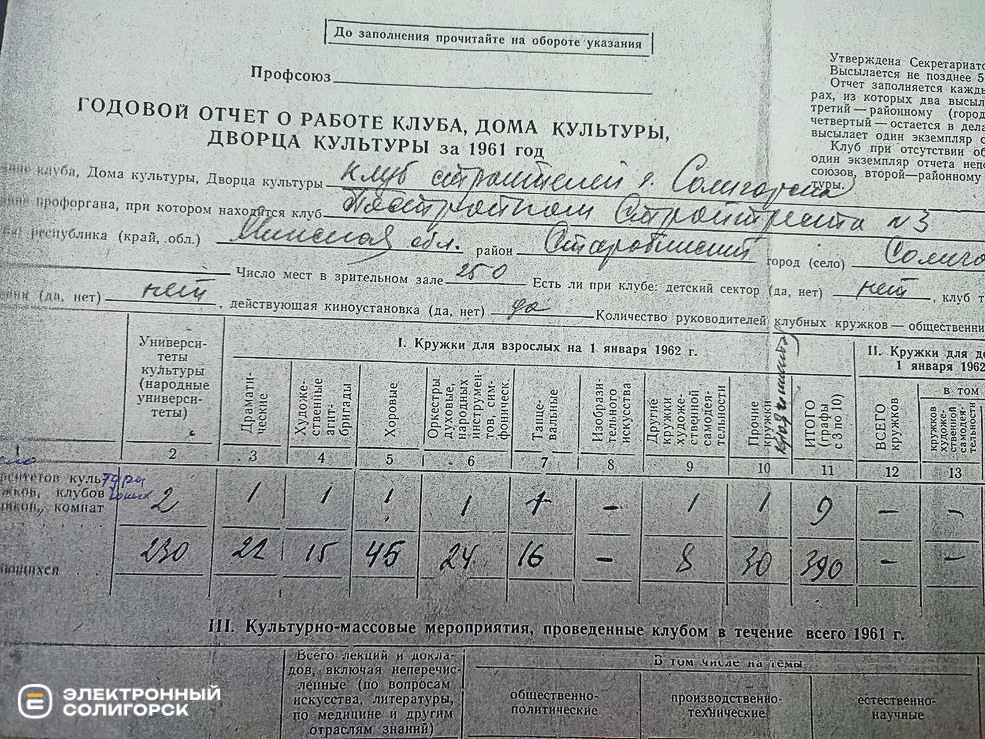 До заполнения прочитайте на обороте указания
Профсоюз
Утверждена Секретариатс
Высылается не позднее 5
Отчет заполняется кажды
рах, из которых два высыл
третий — районному (город
четвертый — остается в дела
высылает один экземпляр с
Клуб при отсутствии об
один экземпляр отчета непо
союзов, второй—районному
туры.
ГОДОВОЙ ОТЧЕТ О РАБОТЕ КЛУБА, ДОМА КУЛЬТУРЫ,
ДВОРЦА КУЛЬТУРЫ за 1961 год
клуба, Дома культуры, Дворца культуры Клуб строителей г. Солигорска
профоргана, при котором находится клуб Постройком Стройтреста №3
республика (край, обл.) Минская обл. район Старобинский город (село) Солиго
Число мест в зрительном зале 250 Есть ли при клубе: детский сектор (да, нет) нет, клуб т
(да, нет) нет, действующая киноустановка (да, нет) да Количество руководителей клубных кружков — общественни
Университеты культуры (народные университеты)
I. Кружки для взрослых на 1 января 1962 г.
II. Кружки для де
1 января 1962
в том
Драматические
Художественные агитбригады
Хоровые
Оркестры духовые, народных инструментов, симфоническ
Танцевальные
Изобразительного искусства
Другие кружки художественной самодеятельности
Прочие кружки
ИТОГО (графы с 3 по 10)
ВСЕГО кружков
кружков художественной самодеятельности
2 3 4 5 6 7 8 9 10 11 12 13
рситетов культуры
жков, клубов
ников, комнат
2 1 1 1 1 1 – 1 1 9 – –
ающихся
230 22 15 45 24 16 – 8 30 390 – –
III. Культурно-массовые мероприятия, проведенные клубом в течение всего 1961 г.
Всего лекций и докла-
дов, включая неперечис-
ленные (по вопросам
искусства, литературы,
по медицине и другим
отраслям знаний)
В том числе на темы
общественно-
политические
производственно-
технические
естественно-
научные
ЭЛЕКТРОННЫЙ
СОЛИГОРСК